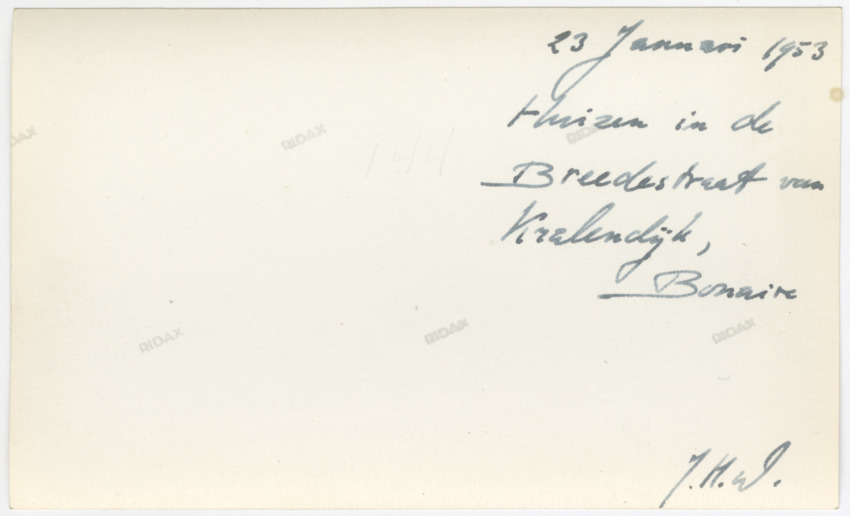 23 Januari 1953
Huizen in de
Breedestraat van
Kralendijk,
Bonaire
144
J.H.W.
RIDAX
RIDAX
RIDAX
RIDAX
RIDAX
RIDAX